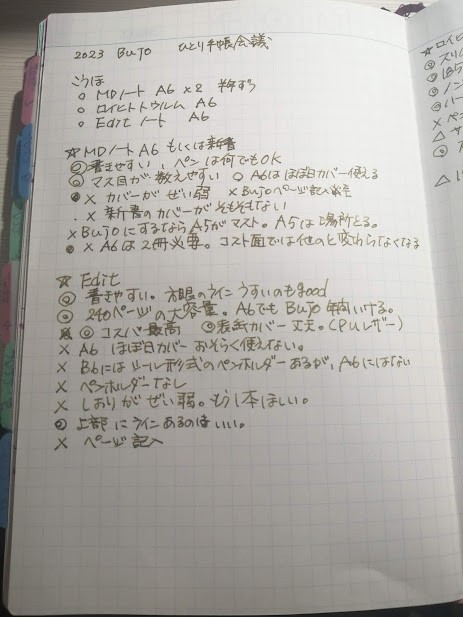 2023 BuJo ひとり手帳会議
こうほ
○ MDノート A6 ×2 半年ずつ
○ ロイヒトトゥルム A6
○ Edit ノート A6
☆ MDノート A6 もしくは新書
◎ 書きやすい、ペンは何でもOK
◎ マス目が数えやすい ○ A6はほぼ日カバー使える
× カバーがぜい弱 × BuJoページ記入必至
× 新書のカバーがそもそもない
× BuJoにするならA5がマスト。A5は場所とる。
× A6は2冊必要。コスト面では他のと変わらなくなる
☆ Edit
◎ 書きやすい。方眼のラインうすいのもgood
◎ 240ページの大容量。A6でもBuJo年間いける。
◎ コスパ最高 ◎表紙カバー丈夫。(PUレザー)
× A6 ほぼ日カバーおそらく使えない。
× B6にはルール形式のペンホルダーあるが、A6にはない
× ペンホルダーなし
× しおりがぜい弱。もう1本ほしい。
◎ 上部にラインあるのはいい。
× ページ記入
☆ロイヒ
◎ スリム
◎ ノン
× ペン
△ サ